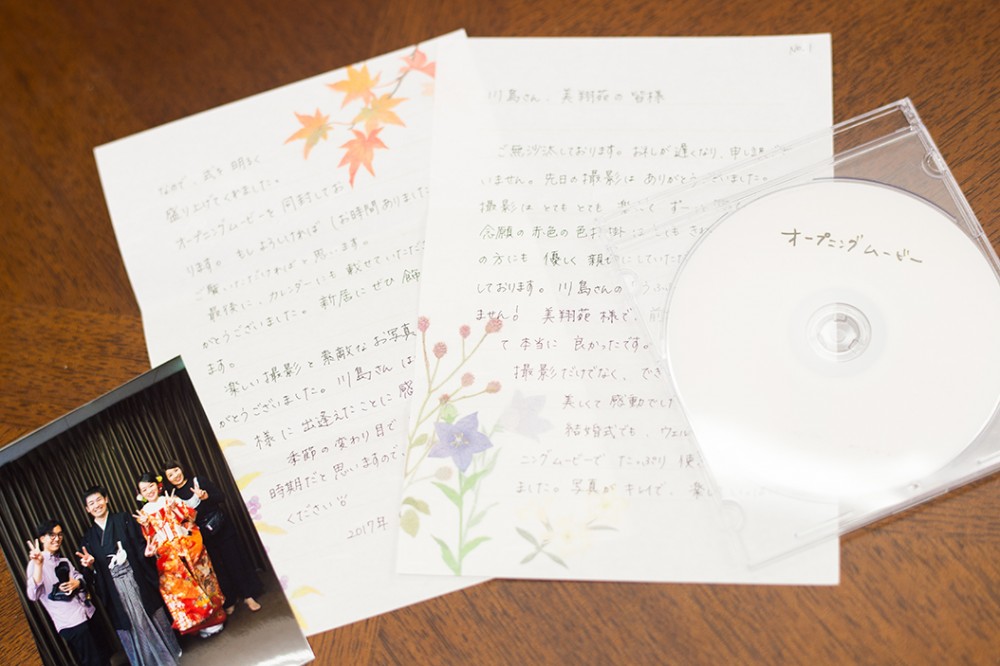 No. 1
川島さん、美翔苑の皆様
ご無沙汰しております。お礼が遅くなり、申し
いません。先日の撮影は ありがとうございました。
撮影は とてもとても
念願の赤色の色打掛は とても
の方にも 優しく 親
しております。川島さんの
ません! 美翔苑様で、前
て 本当に 良かったです。
撮影だけでなく、でき
美しくて 感動でした
結婚式でも、ウェル
ニングムービーで たっぷり 使
ました。写真が キレイで、
なので、式を 明るく
盛り上げてくれました。
オープニングムービーを 同封してお
ります。もしよろしければ (お時間ありました
ご覧いただければと 思います。
最後に、カレンダーにも 載せていただき
がとうございました。新居に ぜひ 飾
ます。
楽しい撮影と 素敵な お写真
がとうございました。川島さん
様に 出逢えたことに 感
季節の変わり目で
時期だと 思いますので、
ください
2017年
オープニングムービー